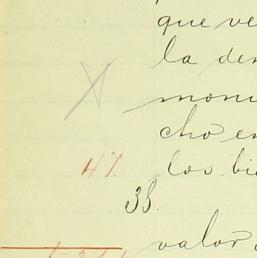 que ve
la den
monu
cho en
47. los bi
38.
valor